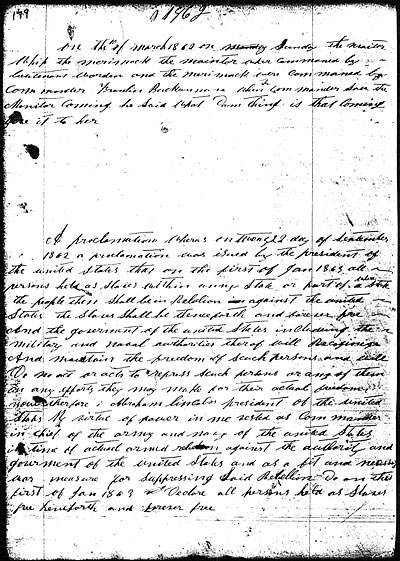 149
1862
on the 9th of march 1862 on Sunday the monitor
Whip the merrimack the moinitor wher commaned by
Lieutenant Wordon and the merimack were Commaned by
Commander Franklin Buckannan when Commander saw the
Monitor Coming he said What Dam thing is that Coming
give it to her
A proclamation Wheras on twony 22 day of September
1862 a proclamation was issued by the president of
the united states that on the first of Jan 1863 all
persons held as slaves within anny State or part of a State when
the people then Shall be in Rebelion against the united
States the slaves Shall be thenceforth and forever free
And the goverment of the united States including the
military and naval authorities therof will Recognize
And maintain the freedom of Such persons and will
Do no act or acts to repress such persons or any of them
in any efforts they may make for their actual freedom
now therfore i Abraham lincoln president of the united
States By virtue of power in me vested as Commander
in chief of the army and navy of the united States
in time of actual armed rebelion against the authority and
goverment of the united States and as a fit and necessary
war measure for suppressing said Rebelion Do on this
first of Jan 1863 Declare all persons held as slaves
free henceforth and forever free